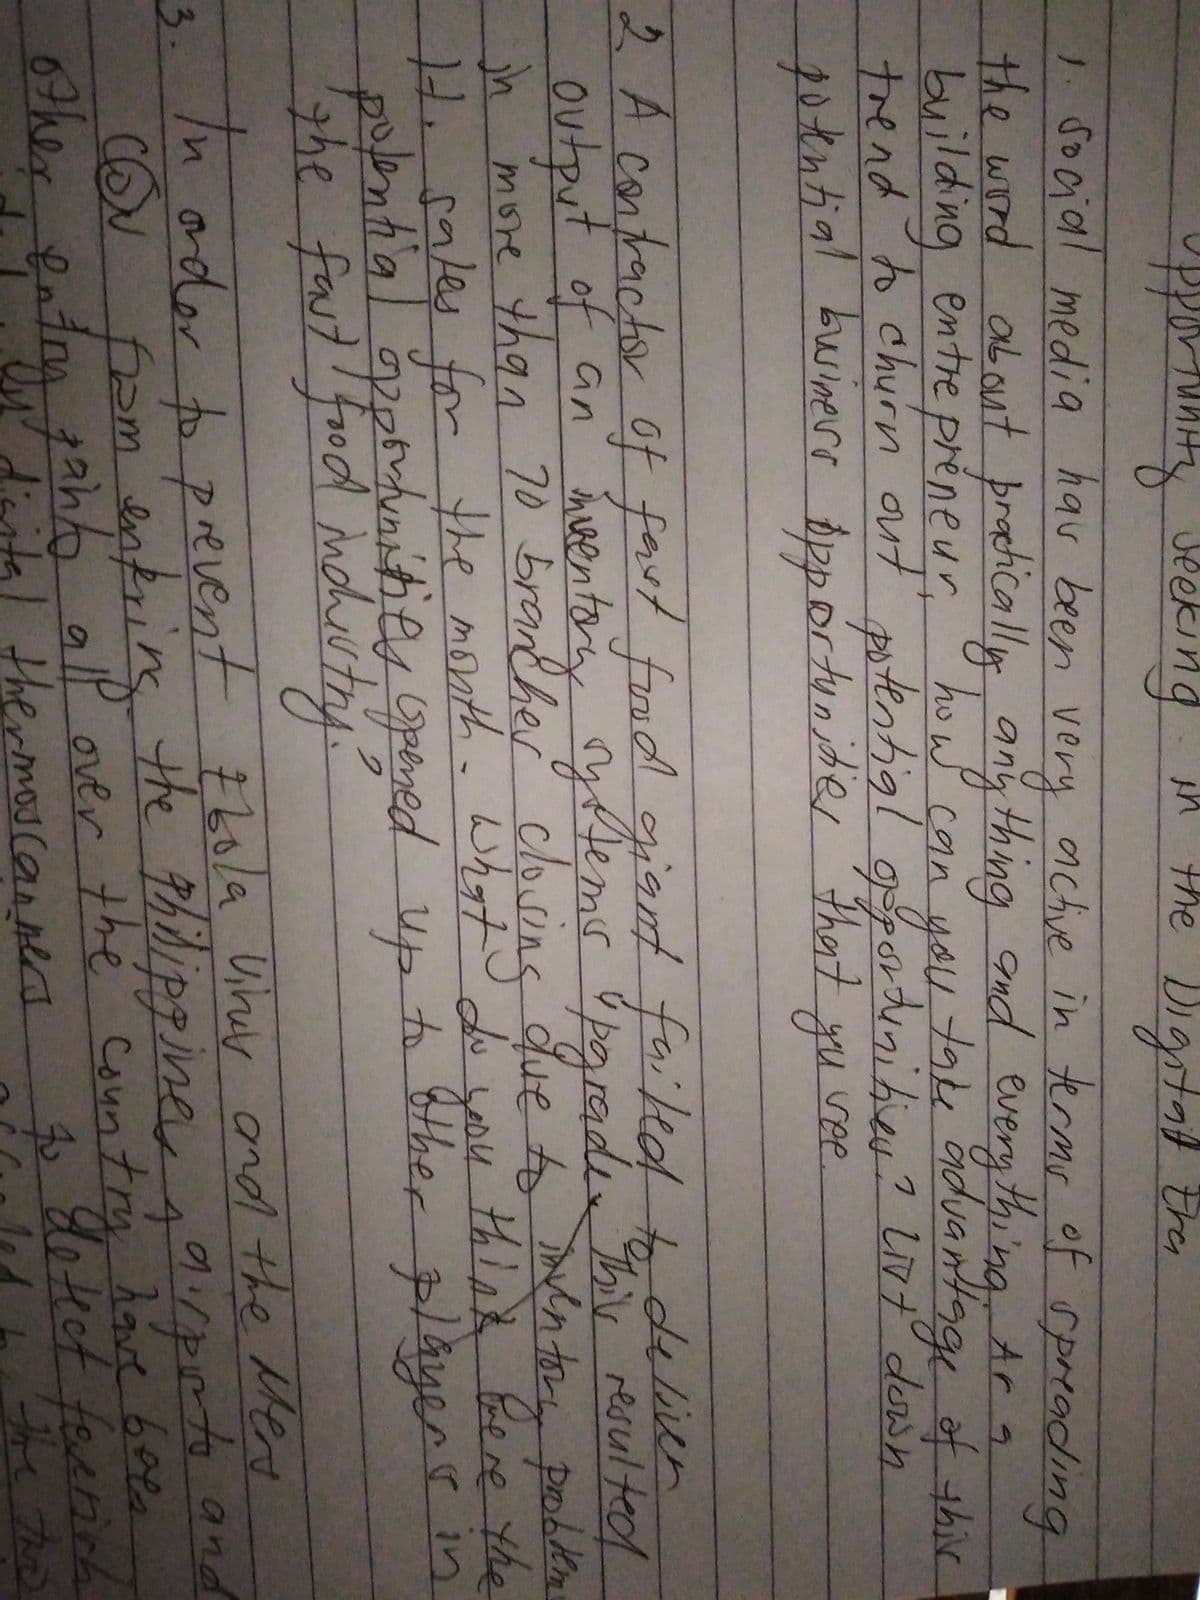 Opportunity Seeking in the Digital Era
1. Social media has been very active in terms of spreading
the word about practically anything and everything. As a
building entrepreneur, how can you take advantage of this
trend to churn out potential opportunities? List down
potential business opportunities that you see.
2 A contractor of fast food giant failed to deliver
output of an inventory systems upgrade. This resulted
in more than 70 branches closing due to inventory problem
H. sales for the month. What do you think were the
potential opportunities opened up to other players in
the fast food industry?
3. In order to prevent Ebola virus and the Mers
CoV from entering the Philippines, airports and
other entry points all over the country have been
digital thermoscanners to detect feverish